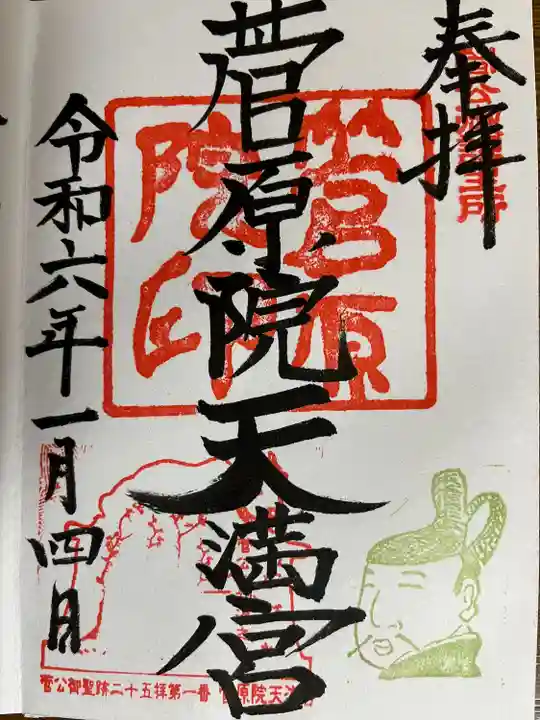 奉拝
菅原院天満宮
菅原院印
令和六年一月四日
菅公御聖跡二十五拝第一番 菅原院天満宮